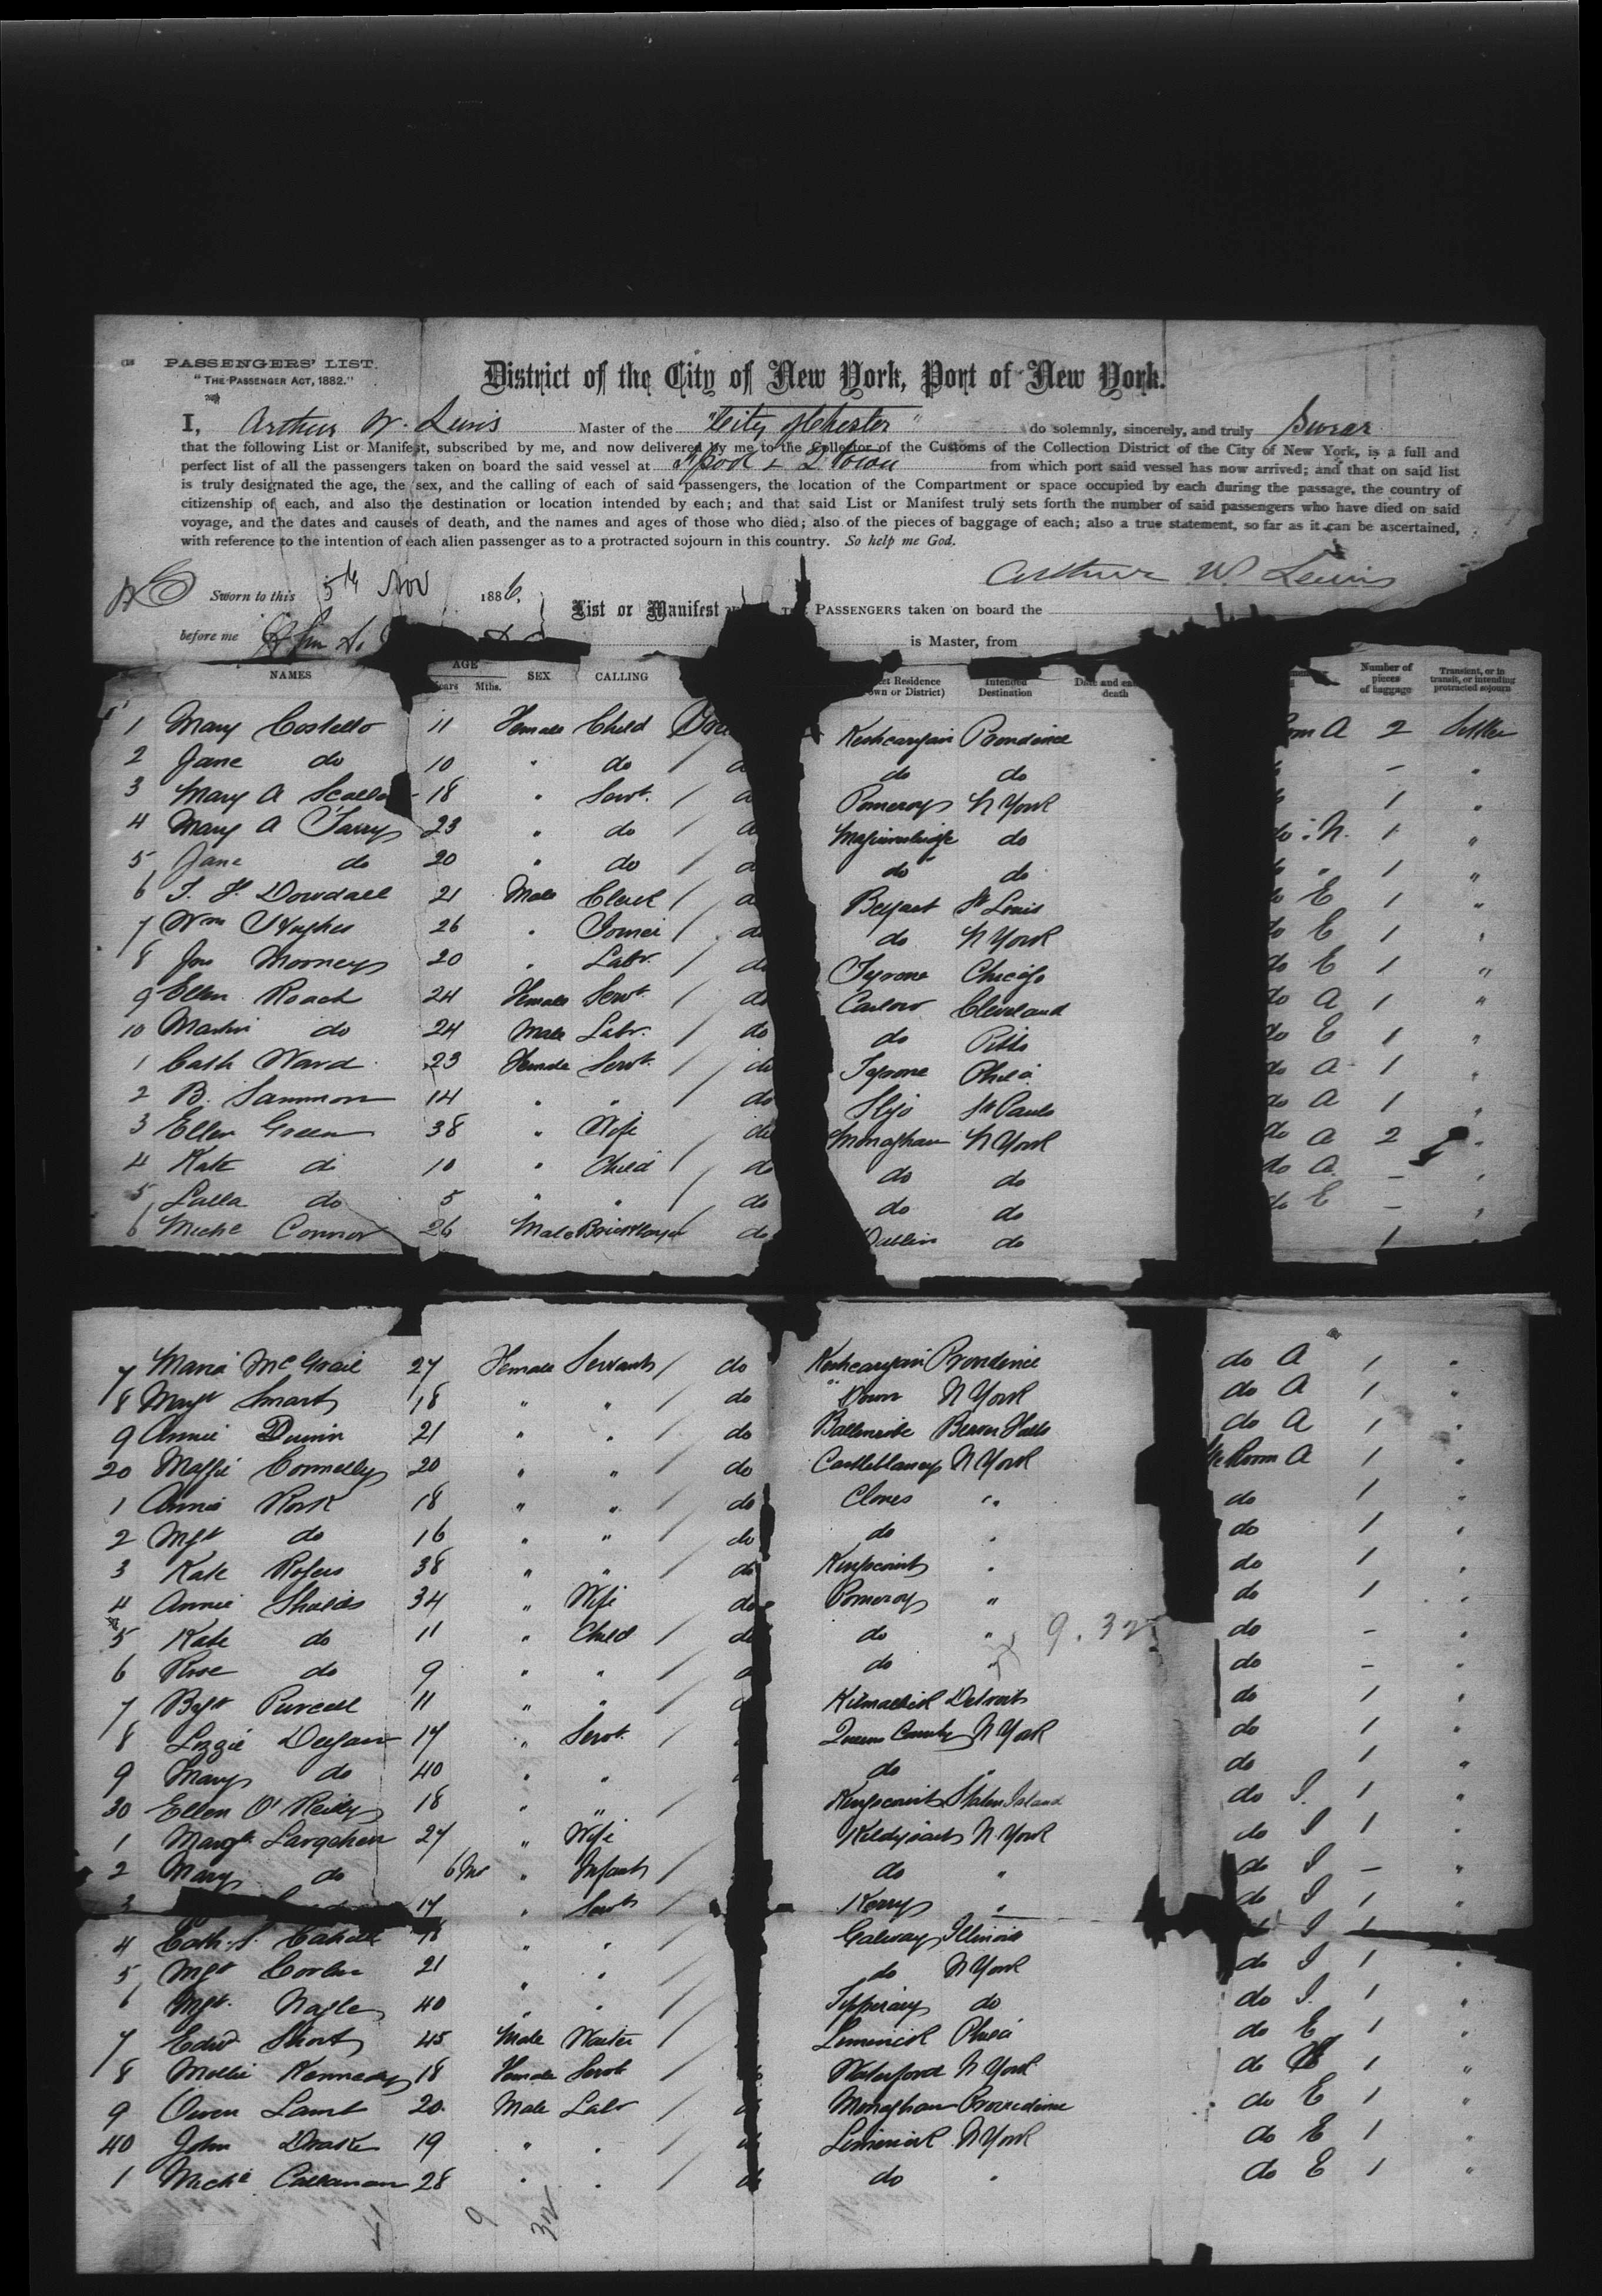 PASSENGERS' LIST.
"THE PASSENGER ACT, 1882."
District of the City of New York, Port of New York.
I, Arthur W. Lewis Master of the "City of Chester" do solemnly, sincerely, and truly Swear
that the following List or Manifest, subscribed by me, and now delivered by me to the Collector of the Customs of the Collection District of the City of New York, is a full and
perfect list of all the passengers taken on board the said vessel at L'pool & Q'town from which port said vessel has now arrived; and that on said list
is truly designated the age, the sex, and the calling of each of said passengers, the location of the Compartment or space occupied by each during the passage, the country of
citizenship of each, and also the destination or location intended by each; and that said List or Manifest truly sets forth the number of said passengers who have died on said
voyage, and the dates and causes of death, and the names and ages of those who died; also of the pieces of baggage of each; also a true statement, so far as it can be ascertained,
with reference to the intention of each alien passenger as to a protracted sojourn in this country. So help me God.
Arthur W. Lewis
Sworn to this 5th Nov 1886,
List or Manifest THE PASSENGERS taken on board the
before me is Master, from
NAMES AGE Years Mths. SEX CALLING Residence (Town or District) Intended Destination Date and death Number of pieces of baggage Transient, or in transit, or intending protracted sojourn
1 Mary Costello 11 Female Child Keshcarrigan Providence Room A 2 Settler
2 Jane do 10 " do / do do - "
3 Mary A 18 " Servt. / Pomeroy N York 1 "
4 Mary A 23 " do / do do N. 1 "
5 Jane do 20 " do / do do " 1 "
6 T. H. Dowdall 21 Male Clerk / Belfast St Louis do E 1 "
7 Wm Hughes 26 " Joiner / do do N York do E 1 "
8 Jos Mooney 20 " Labr. / do Tyrone Chicago do E 1 "
9 Ellen Roach 24 Female Servt. / do Carlow Cleveland do A 1 "
10 Martin do 24 Male Labr. / do do Pitts do E 1 "
1 Cath Ward 23 Female Servt. / do Tyrone Phila do A 1 "
2 B. Sammon 14 " " / do Sligo St Pauls do A 1 "
3 Ellen Green 38 " Wife do Monaghan N York do A 2 "
4 Kate do 10 " Child / do do do do A - "
5 Lalla do 5 " " / do do do do E - "
6 Michl Connor 26 Male Bricklayer do Dublin do 1 "
7 Maria McGrail 27 Female Servant / do Keshcarrigan Providence do A 1 "
8 Magt Smart 18 " " / do Down N York do A 1 "
9 Annie Dunin 21 " " / do Ballinrobe Beaver Falls do A 1 "
20 Maggie Connelly 20 " " / do Castleblaney N York Room A 1 "
1 Annie Rork 18 " " / do Clones " do 1 "
2 Mgt do 16 " " / do do " do 1 "
3 Kate Rogers 38 " " / do Kingscourt " do 1 "
4 Annie Shields 34 " Wife do Pomeroy " do 1 "
5 Kate do 11 " Child / do do " 9.32 do - "
6 Rose do 9 " " / do " do - "
7 Bgt Purcell 11 " " / Kilmallick Detroit do 1 "
8 Lizzie Deegan 17 " Servt. / Queens County N York do 1 "
9 Mary do 40 " " do " do 1 "
30 Ellen O'Reilly 18 " " / Kingscourt Staten Island do I. 1 "
1 Margt 27 " Wife Kildysart N York do I 1 "
2 Mary do 6 Ms " Infant / do " do I - "
3 17 " Servt / Kerry " do I 1 "
4 Cath. S. Cahill 18 " " / Galway Illinois I 1
5 Mgt 21 " " / do N York do I 1 "
6 Mgt. Nagle 40 " " / Tipperary do do I. 1 "
7 Edwd Short 45 Male Waiter / Limerick Phila do E 1 "
8 Mollie Kennedy 18 Female Servt / Waterford N York do 1 "
9 Owen Lamb 20 Male Labr / Monaghan Providence do E 1 "
40 John Drake 19 " " / Limerick N York do E 1 "
1 Michl Callanan 28 " " / do do " do E 1 "
41 9 32